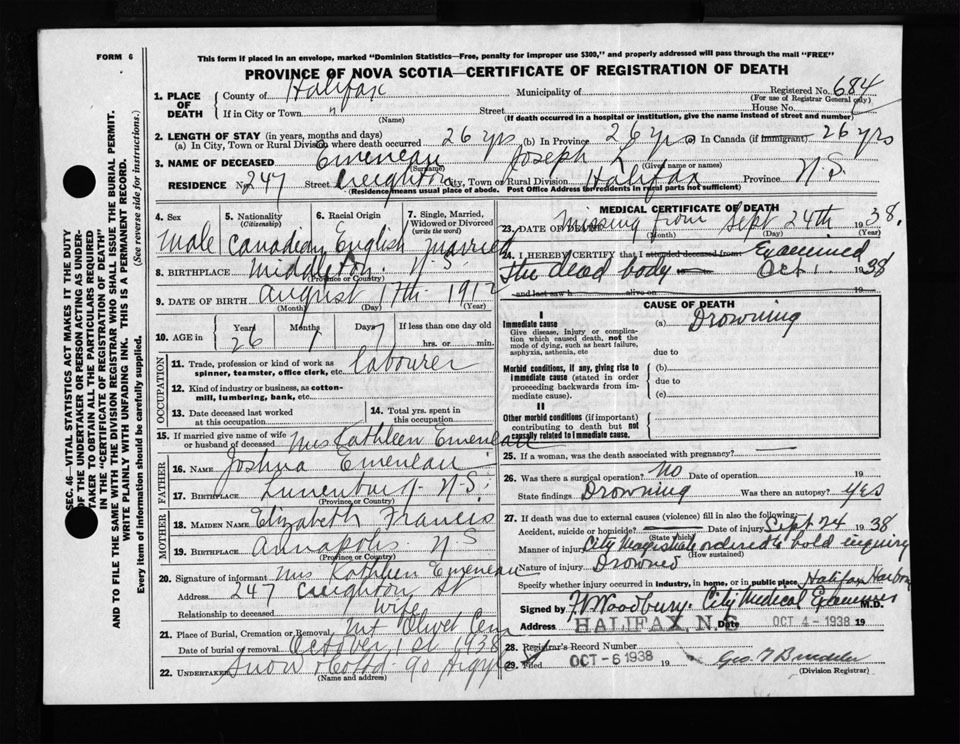 FORM 6
This form if placed in an envelope, marked "Dominion Statistics—Free, penalty for improper use $300," and properly addressed will pass through the mail "FREE"
PROVINCE OF NOVA SCOTIA—CERTIFICATE OF REGISTRATION OF DEATH
1. PLACE OF DEATH
County of Halifax Municipality of Registered No. 684
(For use of Registrar General only)
If in City or Town " Street House No.
(Name) (If death occurred in a hospital or institution, give the name instead of street and number)
2. LENGTH OF STAY (in years, months and days)
(a) In City, Town or Rural Division where death occurred 26 yrs (b) In Province 26 yrs (c) In Canada (if immigrant) 26 yrs
3. NAME OF DECEASED Emeneau Joseph L
(Surname) (Given name or names)
RESIDENCE No 247 Street Creighton City, Town or Rural Division Halifax Province N.S.
(Residence means usual place of abode. Post Office Address for residents in rural parts not sufficient)
4. Sex 5. Nationality (Citizenship) 6. Racial Origin 7. Single, Married, Widowed or Divorced (write the word)
Male Canadian English married
8. BIRTHPLACE Middleton N.S.
(Province or Country)
9. DATE OF BIRTH August 17th 1912
(Month) (Day) (Year)
10. AGE in Years Months Days If less than one day old
26 1 7 hrs. or min.
OCCUPATION
11. Trade, profession or kind of work as spinner, teamster, office clerk, etc. labourer
12. Kind of industry or business, as cotton-mill, lumbering, bank, etc.
13. Date deceased last worked at this occupation
14. Total yrs. spent in this occupation
15. If married give name of wife or husband of deceased Mrs Kathleen Emeneau
FATHER
16. NAME Joshua Emeneau
17. BIRTHPLACE Lunenburg N.S.
(Province or Country)
MOTHER
18. MAIDEN NAME Elizabeth Francis
19. BIRTHPLACE Annapolis N S
(Province or Country)
20. Signature of informant Mrs Kathleen Emeneau
Address 247 Creighton St
Relationship to deceased Wife
21. Place of Burial, Cremation or Removal Mt Olivet Cem
Date of burial or removal October 1st 1938
22. UNDERTAKER Snow & Co Ltd 90 Argyle
(Name and address)
MEDICAL CERTIFICATE OF DEATH
23. DATE OF DEATH Missing from Sept 24th 1938.
(Month) (Day) (Year)
24. I HEREBY CERTIFY that I attended deceased from Examined
The dead body to Oct 1. 1938
and last saw h alive on 19
CAUSE OF DEATH
I
Immediate cause (a) Drowning
Give disease, injury or complication which caused death, not the mode of dying, such as heart failure, asphyxia, asthenia, etc
due to
Morbid conditions, if any, giving rise to immediate cause (stated in order proceeding backwards from immediate cause).
(b)
due to
(c)
II
Other morbid conditions (if important) contributing to death but not causally related to immediate cause.
25. If a woman, was the death associated with pregnancy?
26. Was there a surgical operation? No Date of operation 19
State findings Drowning Was there an autopsy? Yes
27. If death was due to external causes (violence) fill in also the following:
Accident, suicide or homicide? Date of injury Sept 24 1938
(State which)
Manner of injury City Magistrate ordered to hold inquiry
(How sustained)
Nature of injury Drowned
Specify whether injury occurred in industry, in home, or in public place Halifax Harbor
Signed by F V Woodbury. City Medical Examiner M.D.
Address HALIFAX, N.S Date OCT 4 - 1938 19
28. Registrar's Record Number
29. Filed OCT - 6 1938 19
(Division Registrar)
SEC. 46—VITAL STATISTICS ACT MAKES IT THE DUTY
OF THE UNDERTAKER OR PERSON ACTING AS UNDER-
TAKER TO OBTAIN ALL THE PARTICULARS REQUIRED
IN THE "CERTIFICATE OF REGISTRATION OF DEATH"
AND TO FILE THE SAME WITH THE DIVISION REGISTRAR WHO SHALL ISSUE THE BURIAL PERMIT.
WRITE PLAINLY WITH UNFADING INK. THIS IS A PERMANENT RECORD.
Every item of information should be carefully supplied. (See reverse side for instructions.)